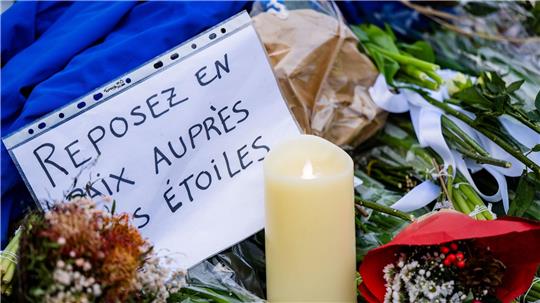 REPOSEZ EN
PAIX AUPRÈS
DES ÉTOILES